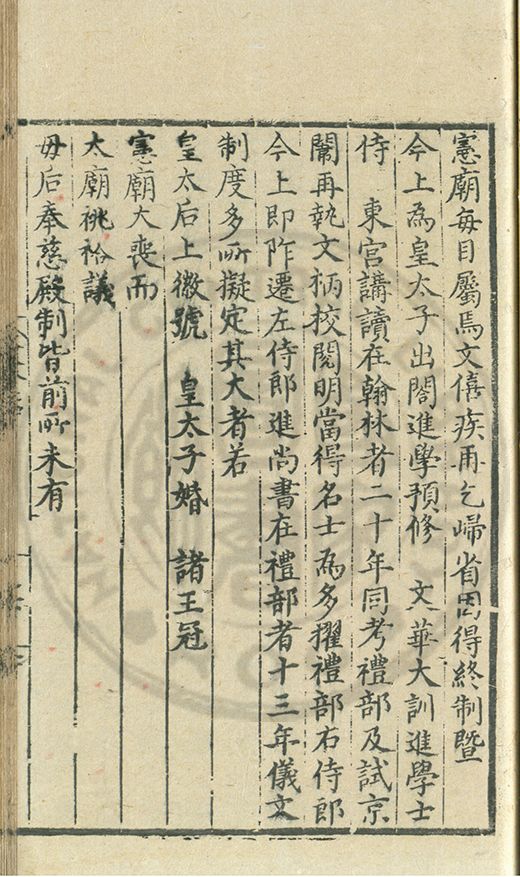 憲廟每目屬焉文僖疾再乞歸省因得終制暨
今上為皇太子出閤進學預修　文華大訓進學士
侍　東宮講讀在翰林者二十年同考禮部及試京
闈再執文柄挍閱明當得名士為多擢禮部右侍郎
今上即阼遷左侍郎進尚書在禮部者十三年儀文
制度多所擬定其大者若
皇太后上徽號　皇太子婚　諸王冠
憲廟大喪而
太廟祧祫議
毋后奉慈殿制皆前所未有